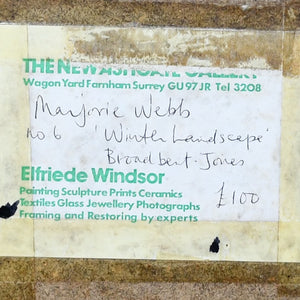 THE NEW ASHGATE GALLERY
Wagon Yard Farnham Surrey GU9 7JR Tel 3208
Marjorie Webb
No 6 'Winter Landscape'
Broadbent-Jones
Elfriede Windsor
£100
Painting Sculpture Prints Ceramics
Textiles Glass Jewellery Photographs
Framing and Restoring by experts